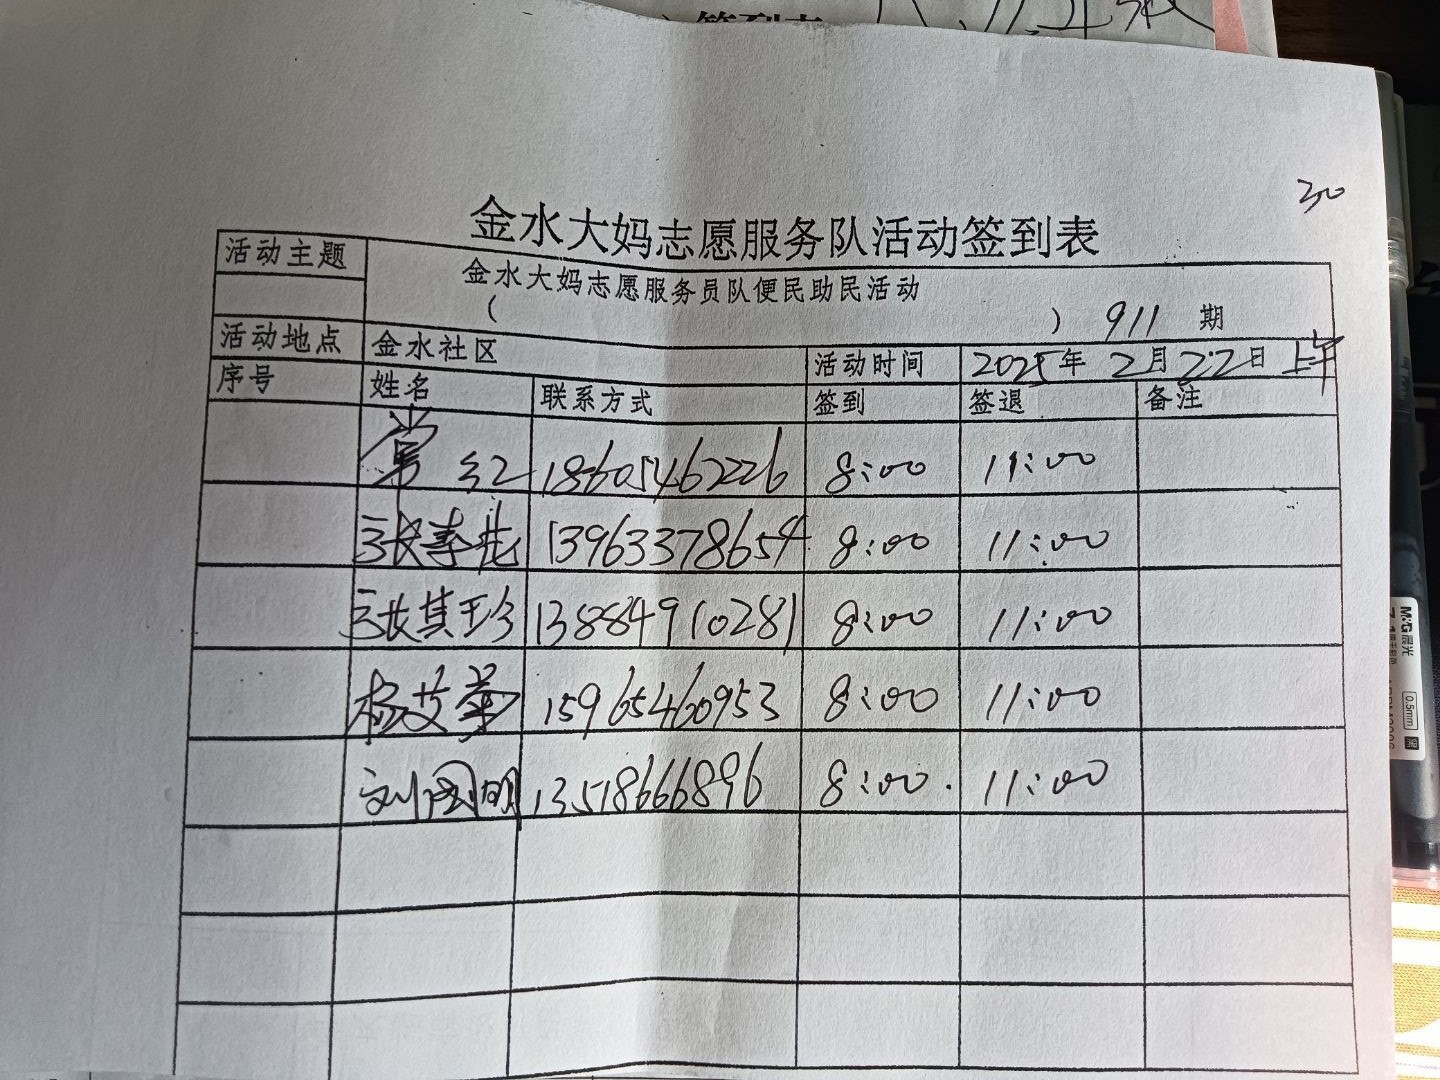 签到表
30
金水大妈志愿服务队活动签到表
活动主题
金水大妈志愿服务员队便民助民活动
( ) 911 期
活动地点 金水社区 活动时间 2025年 2月22日 上午
序号 姓名 联系方式 签到 签退 备注
常红 18605462226 8:00 11:00
张春花 13963378654 8:00 11:00
张其珍 13884910281 8:00 11:00
杨艾荣 15965460953 8:00 11:00
刘国明 13518666896 8:00 11:00
M&G 晨光
0.5mm 黑